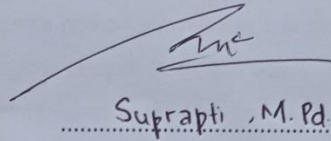 Suprapti , M.Pd.